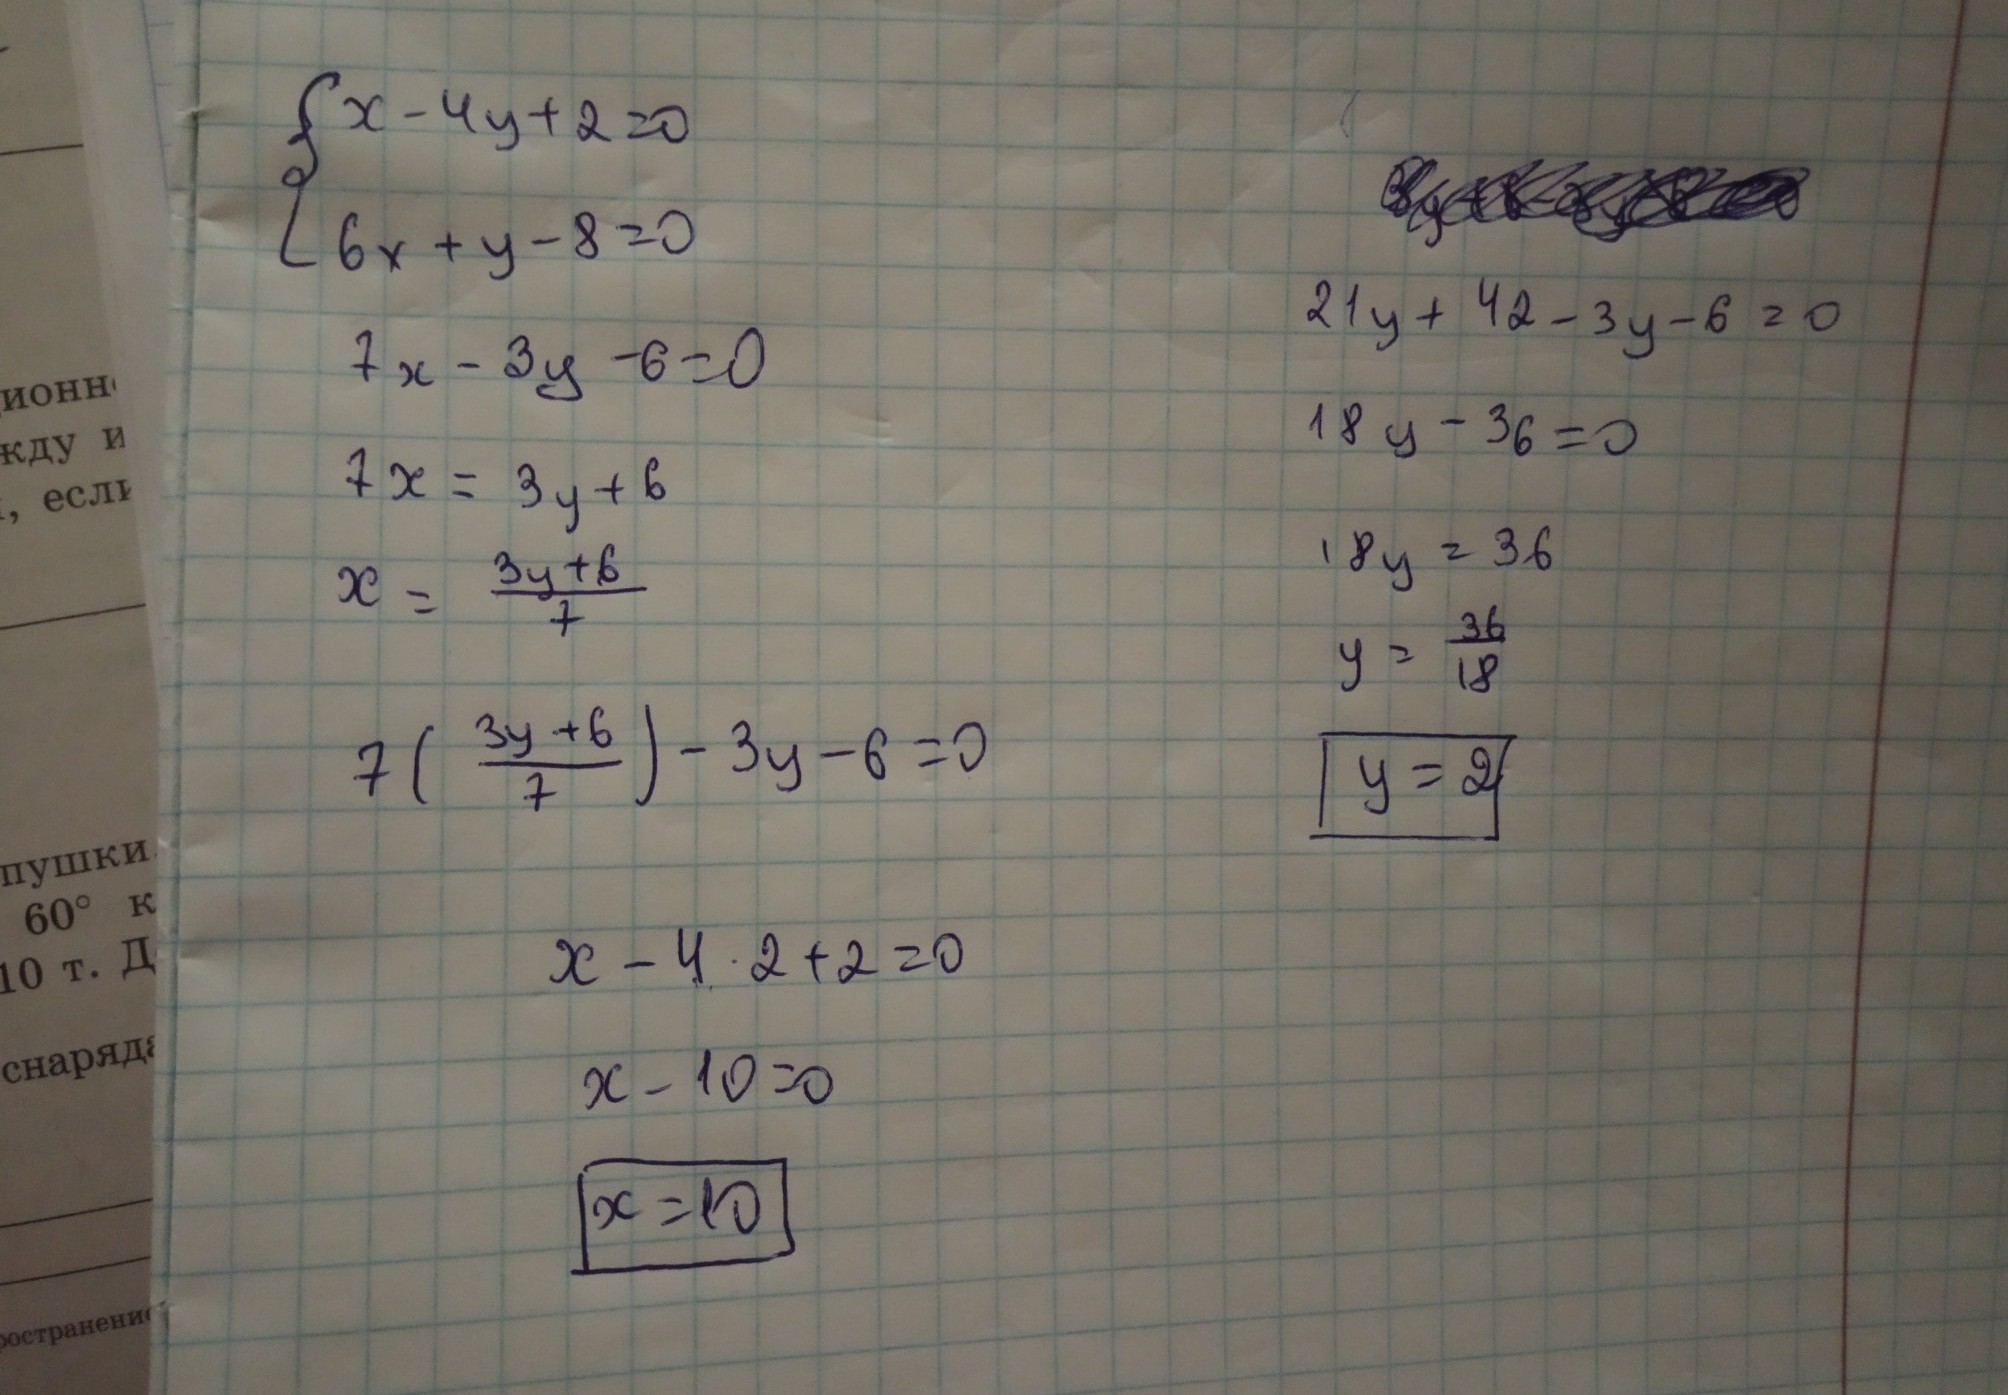 x - 4y + 2 = 0
6x + y - 8 = 0
7x - 3y - 6 = 0
7x = 3y + 6
x = \frac{3y+6}{7}
7(\frac{3y+6}{7}) - 3y - 6 = 0
x - 4 · 2 + 2 = 0
x - 10 = 0
x = 10
21y + 42 - 3y - 6 = 0
18y - 36 = 0
18y = 36
y = \frac{36}{18}
y = 2
жду и
, если
пушки
60° к
10 т. Д